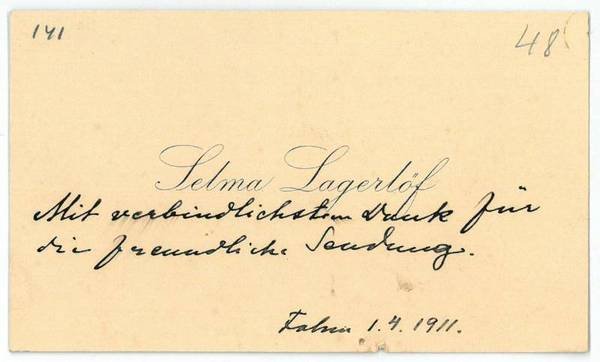 141
48
Selma Lagerlöf
Mit verbindlichstem Dank für
die freundliche Sendung.
Falun 1.4.1911.